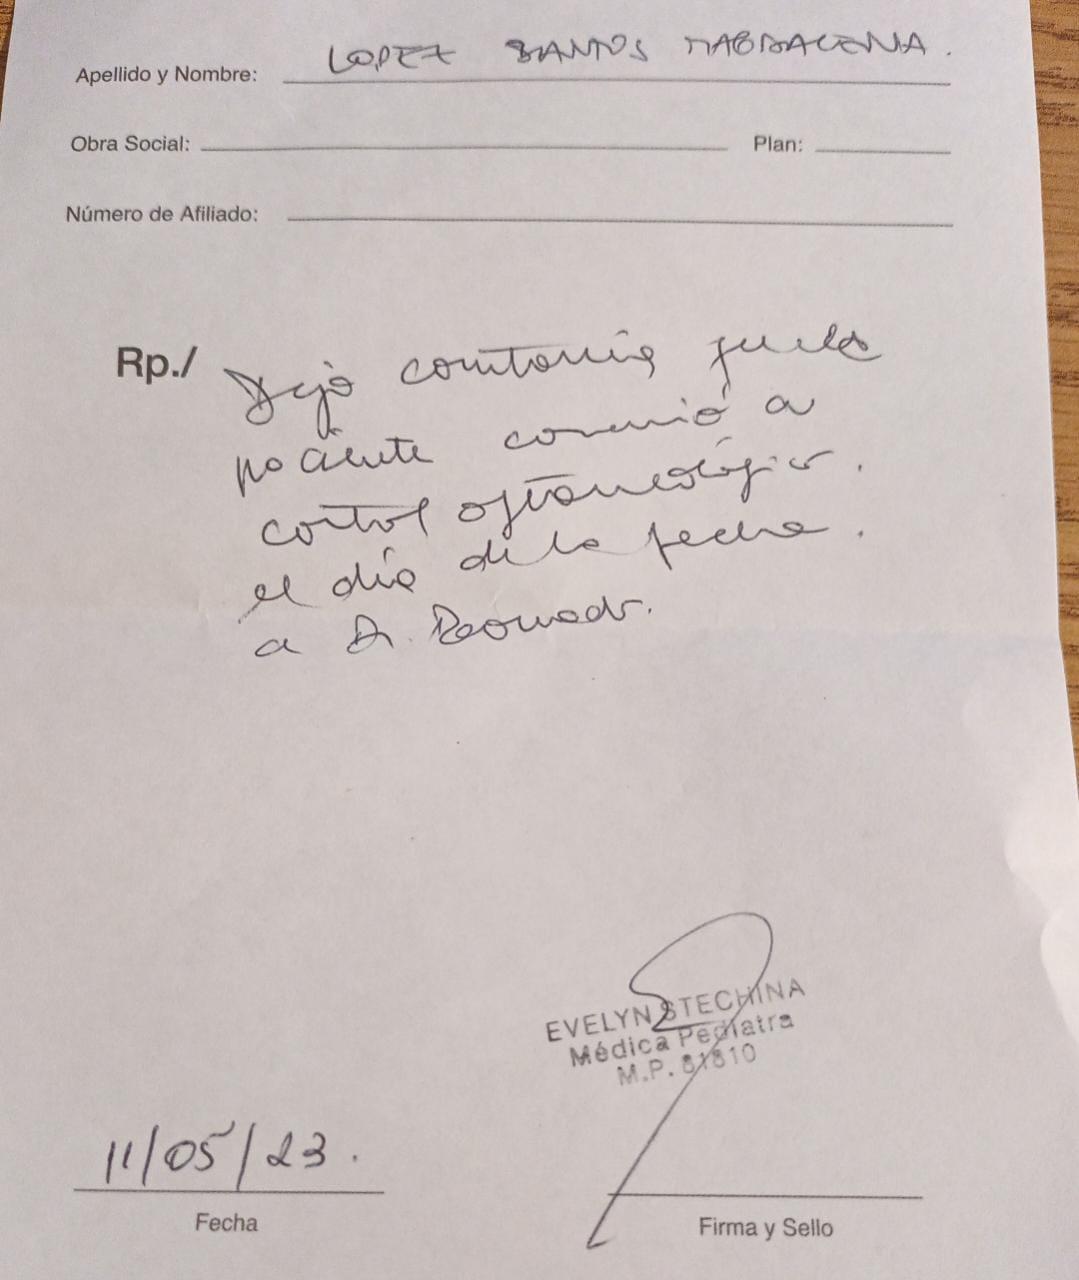 Apellido y Nombre: LOPEZ SANTOS MAGDALENA.
Obra Social: Plan:
Número de Afiliado:
Rp./ Dejo constancia que la
paciente concurrió a
control oftalmológico.
el día de la fecha.
a Dr.
EVELYN STECHINA
Médica Pediatra
M.P. 81810
11/05/23.
Fecha
Firma y Sello